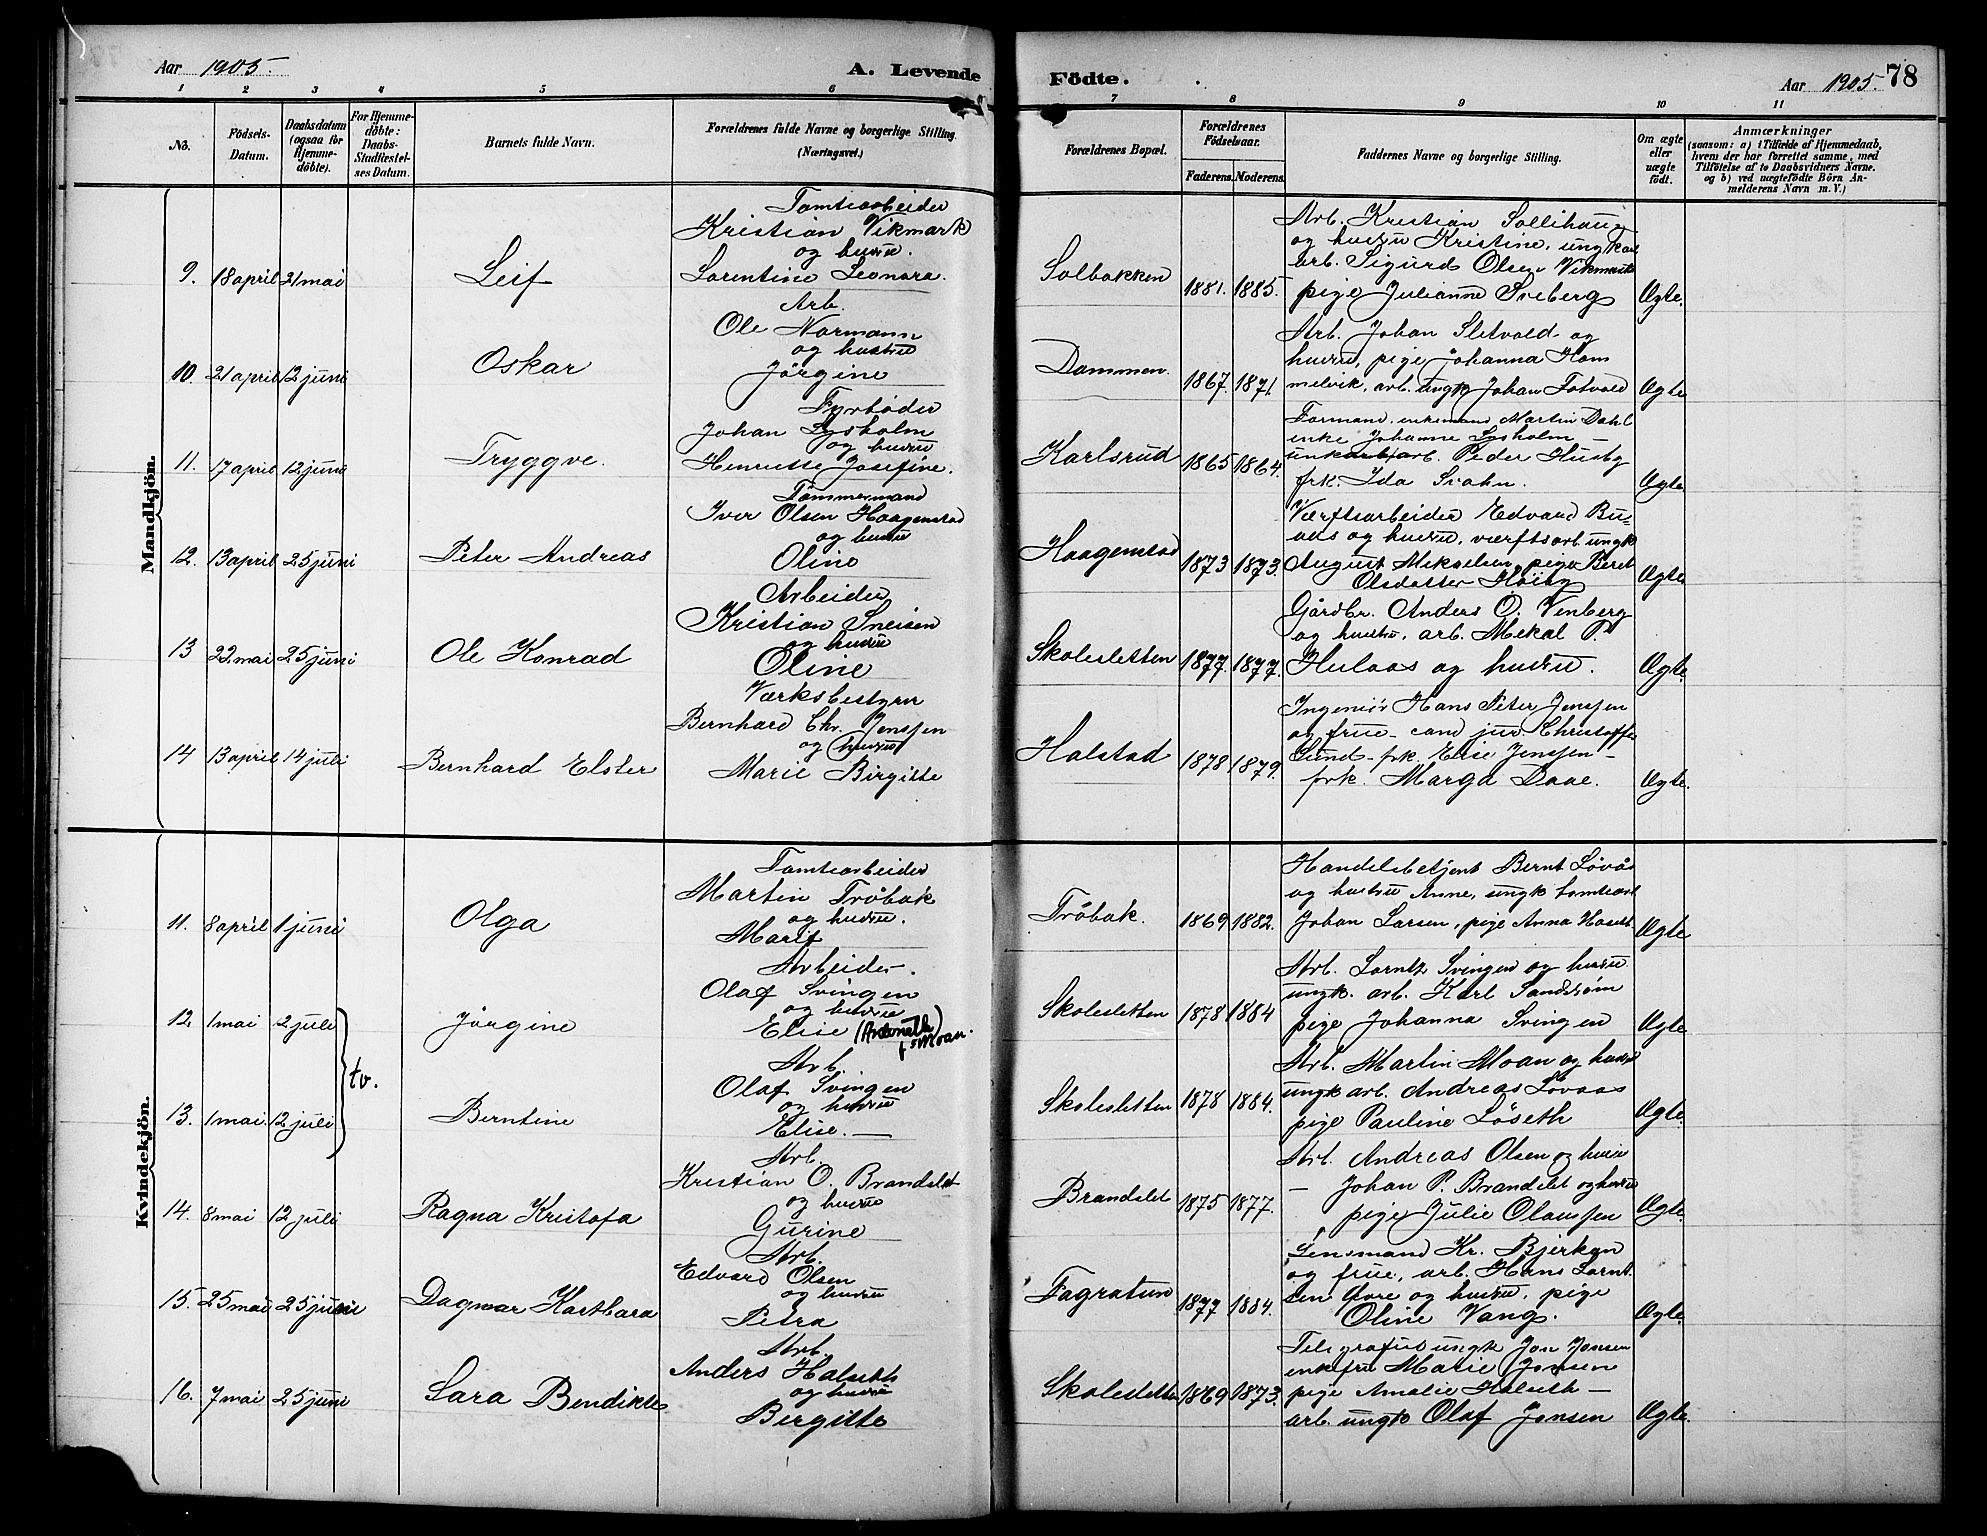 Aar 1905.
A. Levende Födte.
Aar 1905. 78
1 2 3 4 5 6 7 8 9 10 11
No.
Födsels-Datum.
Daabsdatum (ogsaa for Hjemme-döbte).
For Hjemme-döbte: Daabs-Stadfæstel-ses Datum.
Barnets fulde Navn.
Forældrenes fulde Navne og borgerlige Stilling. (Næringsvei.)
Forældrenes Bopæl.
Forældrenes Födselsaar.
Faderens. Moderens.
Faddernes Navne og borgerlige Stilling.
Om ægte eller uægte födt.
Anmærkninger
(saasom: a) i Tilfælde af Hjemmedaab, hvem der har forrettet samme, med Tilföielse af to Daabsvidners Navne. og b) ved uægtefödte Börn An-melderens Navn m. V.)
Mandkjön.
Tomtearbeider
Kristian Vikmark
og hustru
9. 18 april 21 mai Leif Lorentine Leonora.
Solbakken 1881. 1885.
Arb. Kristian Sollihaug
og hustru Kristine, ungkar
arb. Sigurd Olsen Vikmark
pige Julianne Sveberg Ægte.
Arb.
Ole Normann
og hustru
10. 21 april 12 juni Oskar Jørgine
Dammen. 1867. 1871.
Arb. Johan Sletvold og
hustru, pige Johanna Hom
melvik, arb. ungk Johan Fotvold Ægte
Fyrbøder
Johan Lysholm
og hustru
11. 17 april 12 juni Tryggve. Henriette Josefine.
Karlsrud 1865 1864.
Formand, enkemand Martin Dahl
enke Johanne Lysholm —
ungkar arb. Peder Husby
frk. Ida Svahn. Ægte
Tømmermand
Iver Olsen Haagenstad
og hustru
12. 13 april 25 juni Peter Andreas Oline
Haagenstad 1873 1873.
Værftsarbeider Edvard Bu-
aas og hustru, værftsarb. ungk
August Mikalsen, pige Beret
Olsdatter Høiby Ægte
Arbeider
Kristian Sneisen
og hustru
13 22 mai 25 juni Ole Konrad Oline
Skolesletten 1877. 1877.
Gårdbr. Anders O. Venberg
og hustru, arb. Mekal P.
Hulaas og hustru. Ægte.
Værksbestyrer
Bernhard Chr. Jenssen
og hustru
14 13 april 14 juli Bernhard Elster Marie Birgitte
Halstad 1878 1879.
Ingeniør Hans Peter Jenssen
og frue — cand jur. Christoffer
Lund — frk. Elise Jenssen —
frk. Marga Daae. Ægte.
Kvindekjön.
Tomtearbeider
Martin Trøbak
og hustru.
11. 8 april 1 juni Olga Marit
Trøbak. 1869 1882.
Handelsbetjent Bernt Løvås
og hustru Anne, ungk tomtearb
Johan Larsen, pige Anna Ægte
Arbeider.
Olaf Svingen
og hustru
12. 1 mai 2 juli Jørgine Elise (Antonette) f. Moan.
tv.
Skolesletten 1878 1884
Arb. Lorntz Svingen og hustru
ungk. arb. Karl Sandstrøm
pige Johanna Svingen Ægte
Arb.
Olaf Svingen
og hustru
13. 1 mai. 2 juli Berntine Elise. —
Skolesletten 1878 1884.
Arb. Martin Moan og hustru
ungk arb. Andreas Løvaas
pige Pauline Løseth Ægte.
Arb.
Kristian O. Brandslet
og hustru
14. 8 mai 2 juli Ragna Kristofa Gurine
Brandslet 1875 1877.
Arb. Andreas Olsen og hustru
— Johan P. Brandslet og hustru
pige Julie Olaussen Ægte.
Arb.
Edvard Olsen
og hustru
15. 25 mai 25 juni Dagmar Karthara Petra
Fagratun 1877 1884.
Lensmand Kr. Bjerkan
og frue, arb. Hans Larnt
sen Øvre og hustru, pige
Oline Vang. Ægte.
Arb.
Anders Halseth
og hustru
16. 7 mai 25 juni Sara Bendikte Birgitte
Skolesletten 1869 1873.
Telegrafist ungk Jon Jonsen
enkefru Marie Jonsen
pige Amalie Halseth —
arb. ungk Olaf Jonsen Ægte.